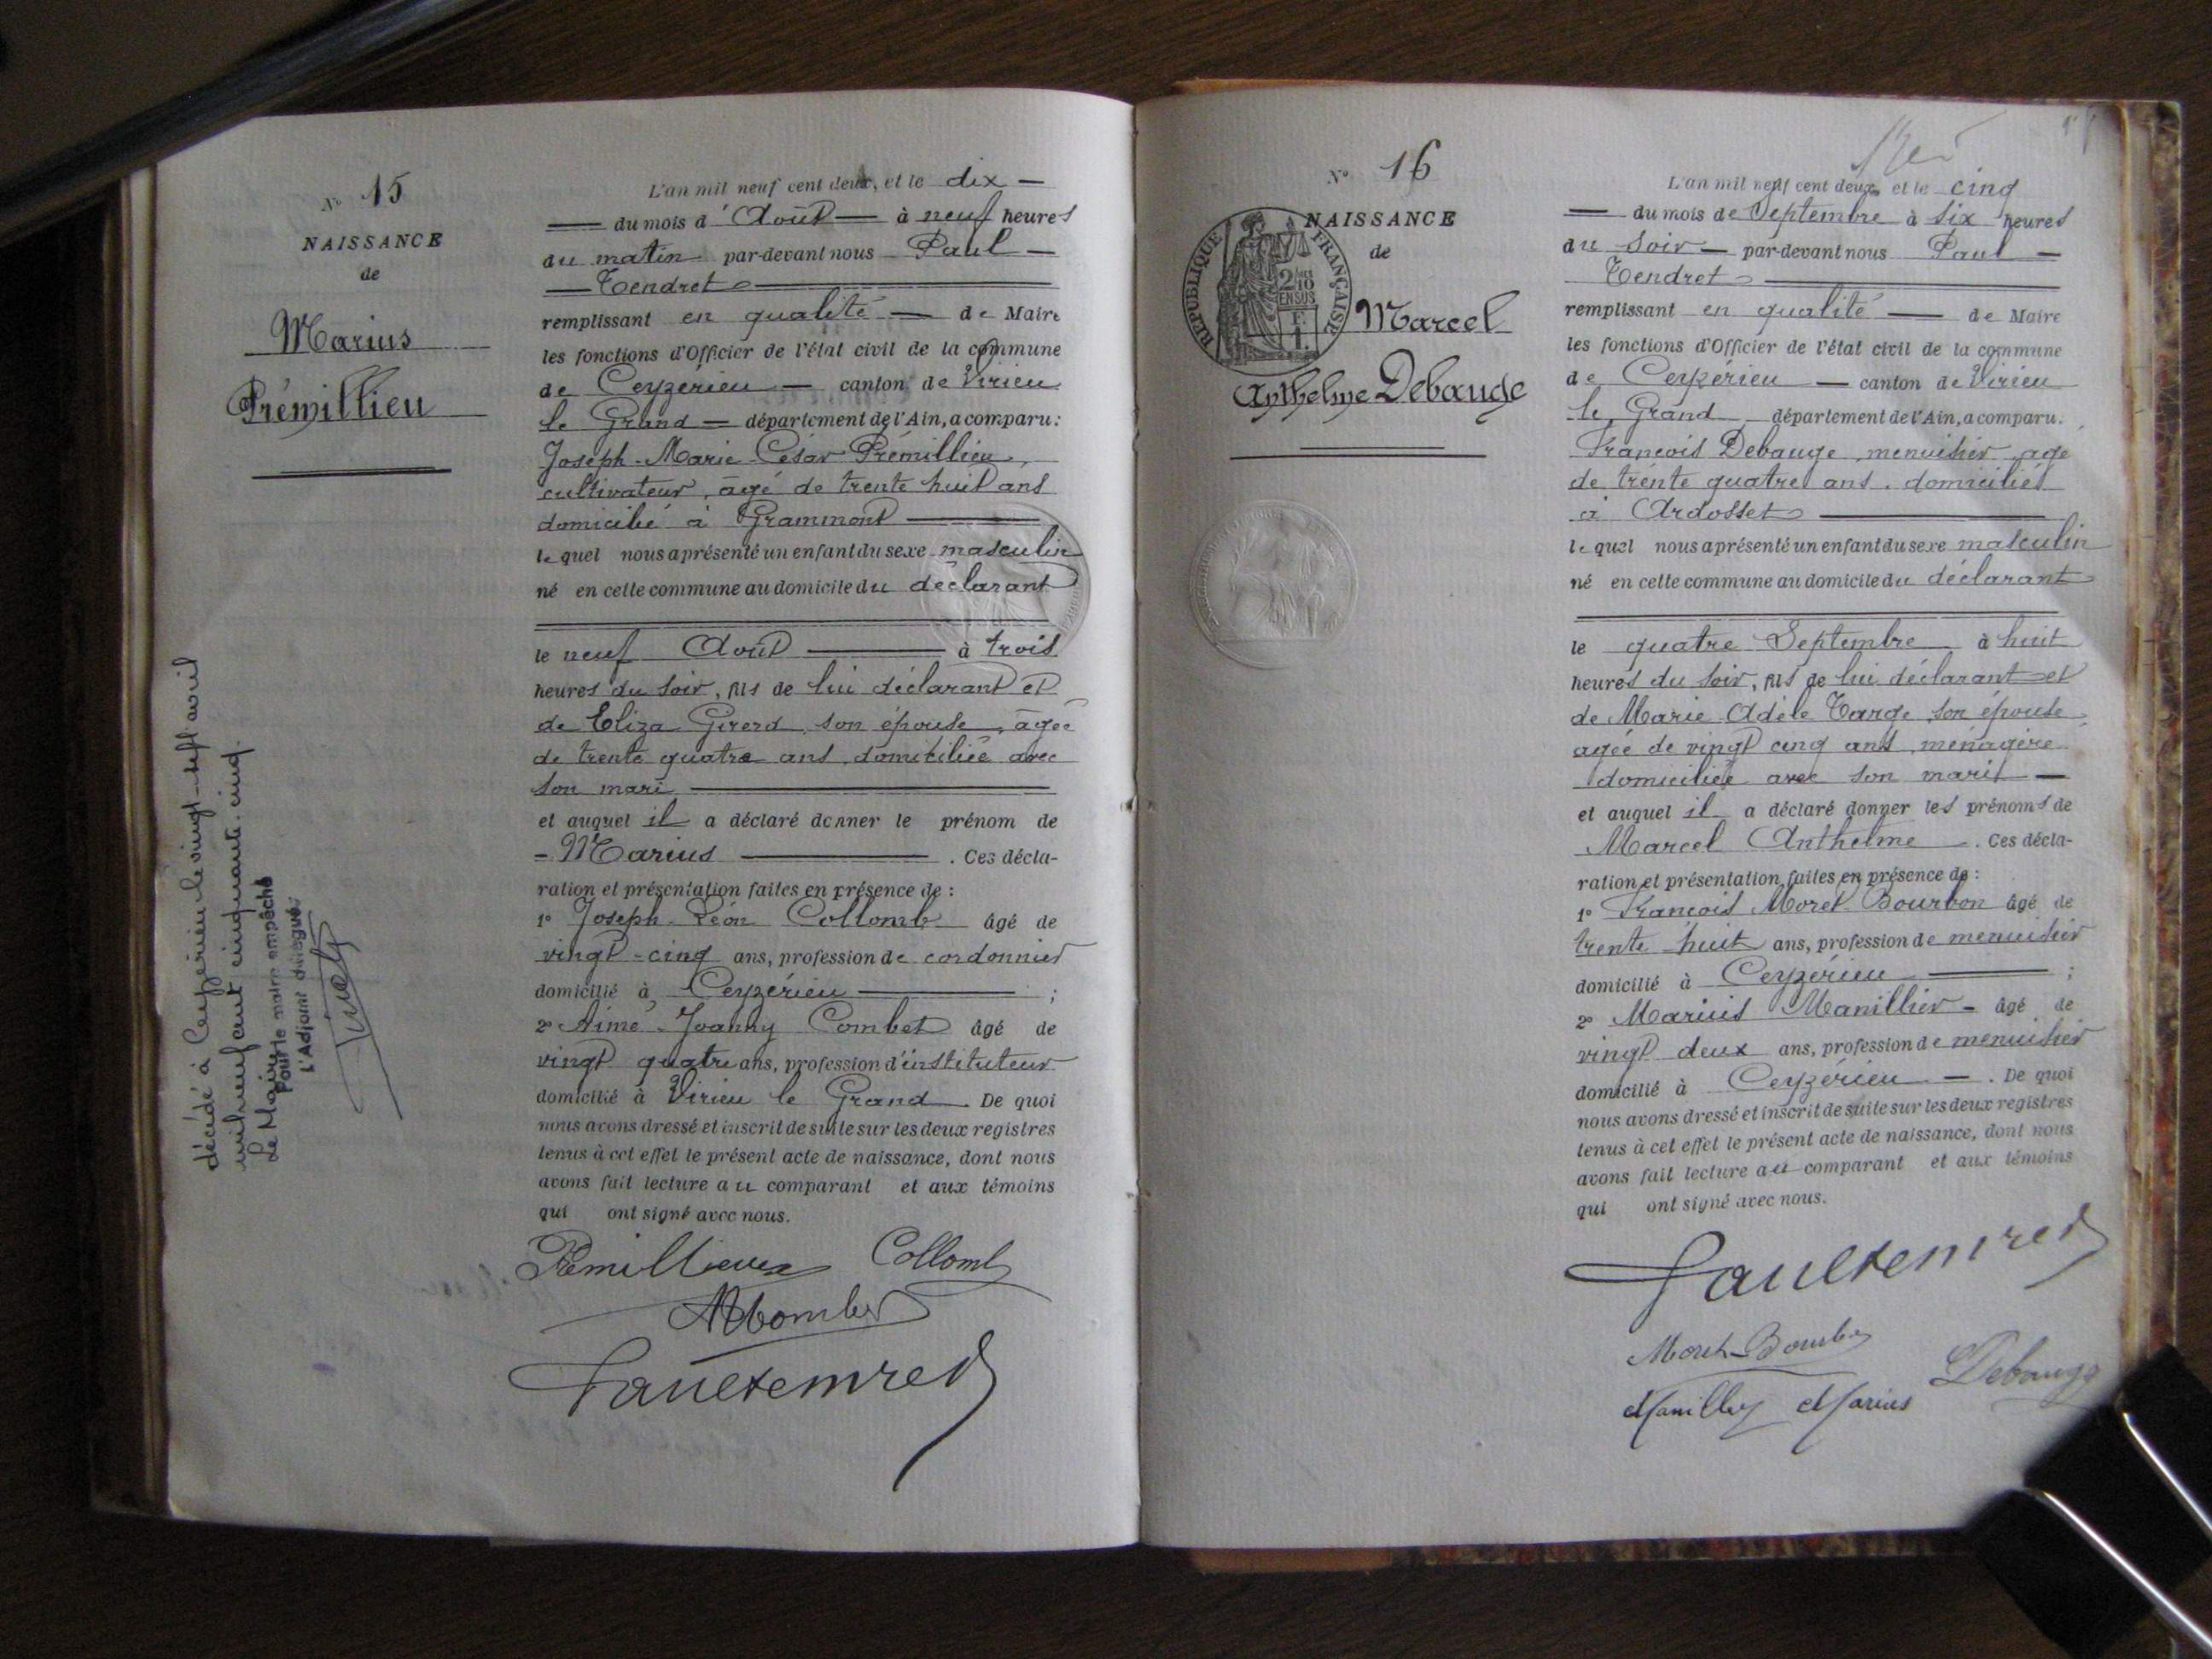 N° 15
NAISSANCE
de
Marius
Prémillieu
décédé à Ceyzérieu le vingt-sept avril
mil neuf cent cinquante-cinq.
Le Maire
Pour le maire empêché
L'Adjoint délégué:
L'an mil neuf cent deux, et le dix —
— du mois d'Août — à neuf heures
du matin par-devant nous Paul —
— Tendret —
remplissant en qualité — de Maire
les fonctions d'Officier de l'état civil de la commune
de Ceyzérieu — canton de Virieu
le Grand — département de l'Ain, a comparu:
Joseph-Marie-César Prémillieu,
cultivateur, âgé de trente huit ans
domicilié à Grammont —
lequel nous a présenté un enfant du sexe masculin
né en cette commune au domicile du déclarant
le neuf Août — à trois
heures du soir, fils de lui déclarant et
de Eliza Girerd, son épouse, âgée
de trente quatre ans, domiciliée avec
son mari —
et auquel il a déclaré donner le prénom de
- Marius — . Ces décla-
ration et présentation faites en présence de :
1° Joseph-Léon Collomb âgé de
vingt-cinq ans, profession de cordonnier
domicilié à Ceyzérieu — ;
2° Aimé-Joanny Combet âgé de
vingt quatre ans, profession d'instituteur
domicilié à Virieu le Grand. De quoi
nous avons dressé et inscrit de suite sur les deux registres
tenus à cet effet le présent acte de naissance, dont nous
avons fait lecture au comparant et aux témoins
qui ont signé avec nous.
Prémillieux Collomb
Combet
Paul Tendret
N° 16
NAISSANCE
de
RÉPUBLIQUE FRANÇAISE
2/10
EN SUS
Marcel
Anthelme Debauge
L'an mil neuf cent deux, et le cinq
— du mois de Septembre à six heures
du soir — par-devant nous Paul —
Tendret —
remplissant en qualité — de Maire
les fonctions d'Officier de l'état civil de la commune
de Ceyzerieu — canton de Virieu
le Grand département de l'Ain, a comparu.
François Debauge, menuisier, age
de trente quatre ans, domiciliés
à Ardosset —
lequel nous a présenté un enfant du sexe masculin
né en cette commune au domicile du déclarant
le quatre Septembre à huit
heures du soir, fils de lui déclarant et
de Marie-Adèle Targe, son épouse
agée de vingt cinq ans, ménagère
domiciliée avec son mari —
et auquel il a déclaré donner les prénoms de
Marcel Anthelme . Ces décla-
ration et présentation faites en présence de :
1° François Morel-Bourbon âgé de
trente huit ans, profession de menuisier
domicilié à Ceyzérieu — ;
2° Marius Manillier - âgé de
vingt deux ans, profession de menuisier
domicilié à Ceyzérieu — . De quoi
nous avons dressé et inscrit de suite sur les deux registres
tenus à cet effet le présent acte de naissance, dont nous
avons fait lecture au comparant et aux témoins
qui ont signé avec nous.
Paul Tendret
Morel-Bourbon
Debauge
Manillier Marius